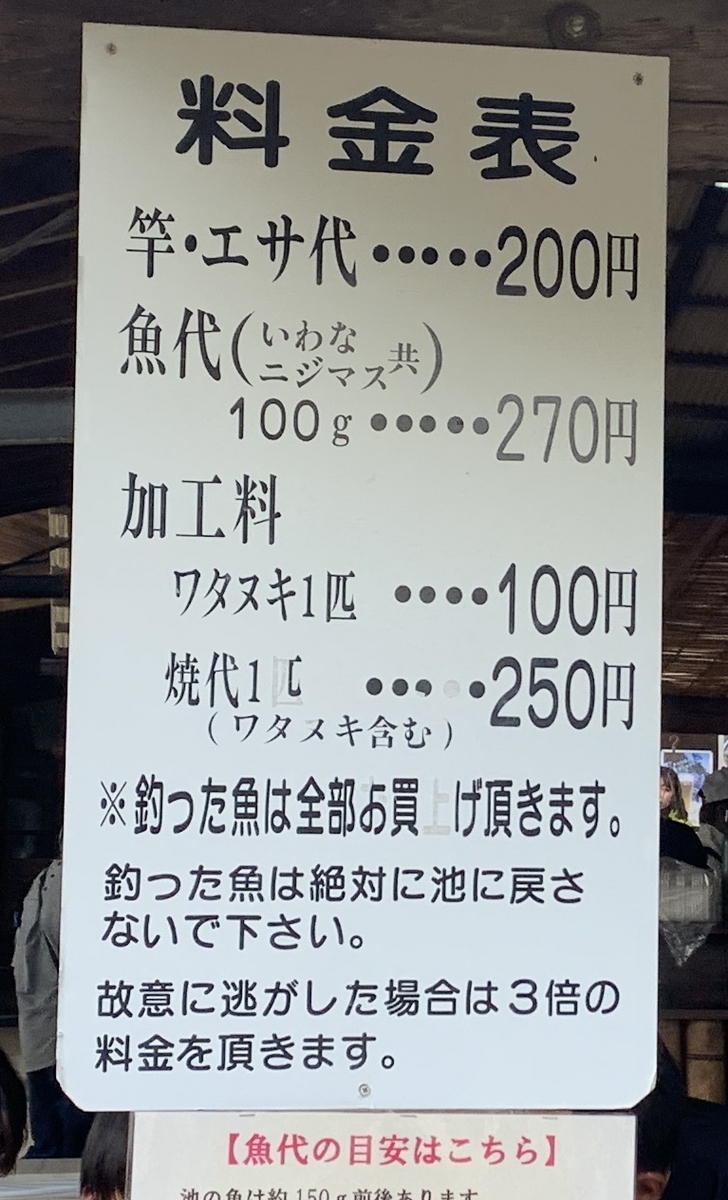 料金表
竿・エサ代•••••200円
魚代(いわな ニジマス 共)
100g•••••270円
加工料
ワタヌキ1匹 ••••100円
焼代1匹 •••••250円
(ワタヌキ含む)
※釣った魚は全部お買上げ頂きます。
釣った魚は絶対に池に戻さ
ないで下さい。
故意に逃がした場合は3倍の
料金を頂きます。
【魚代の目安はこちら】
池の魚は約150g前後あります